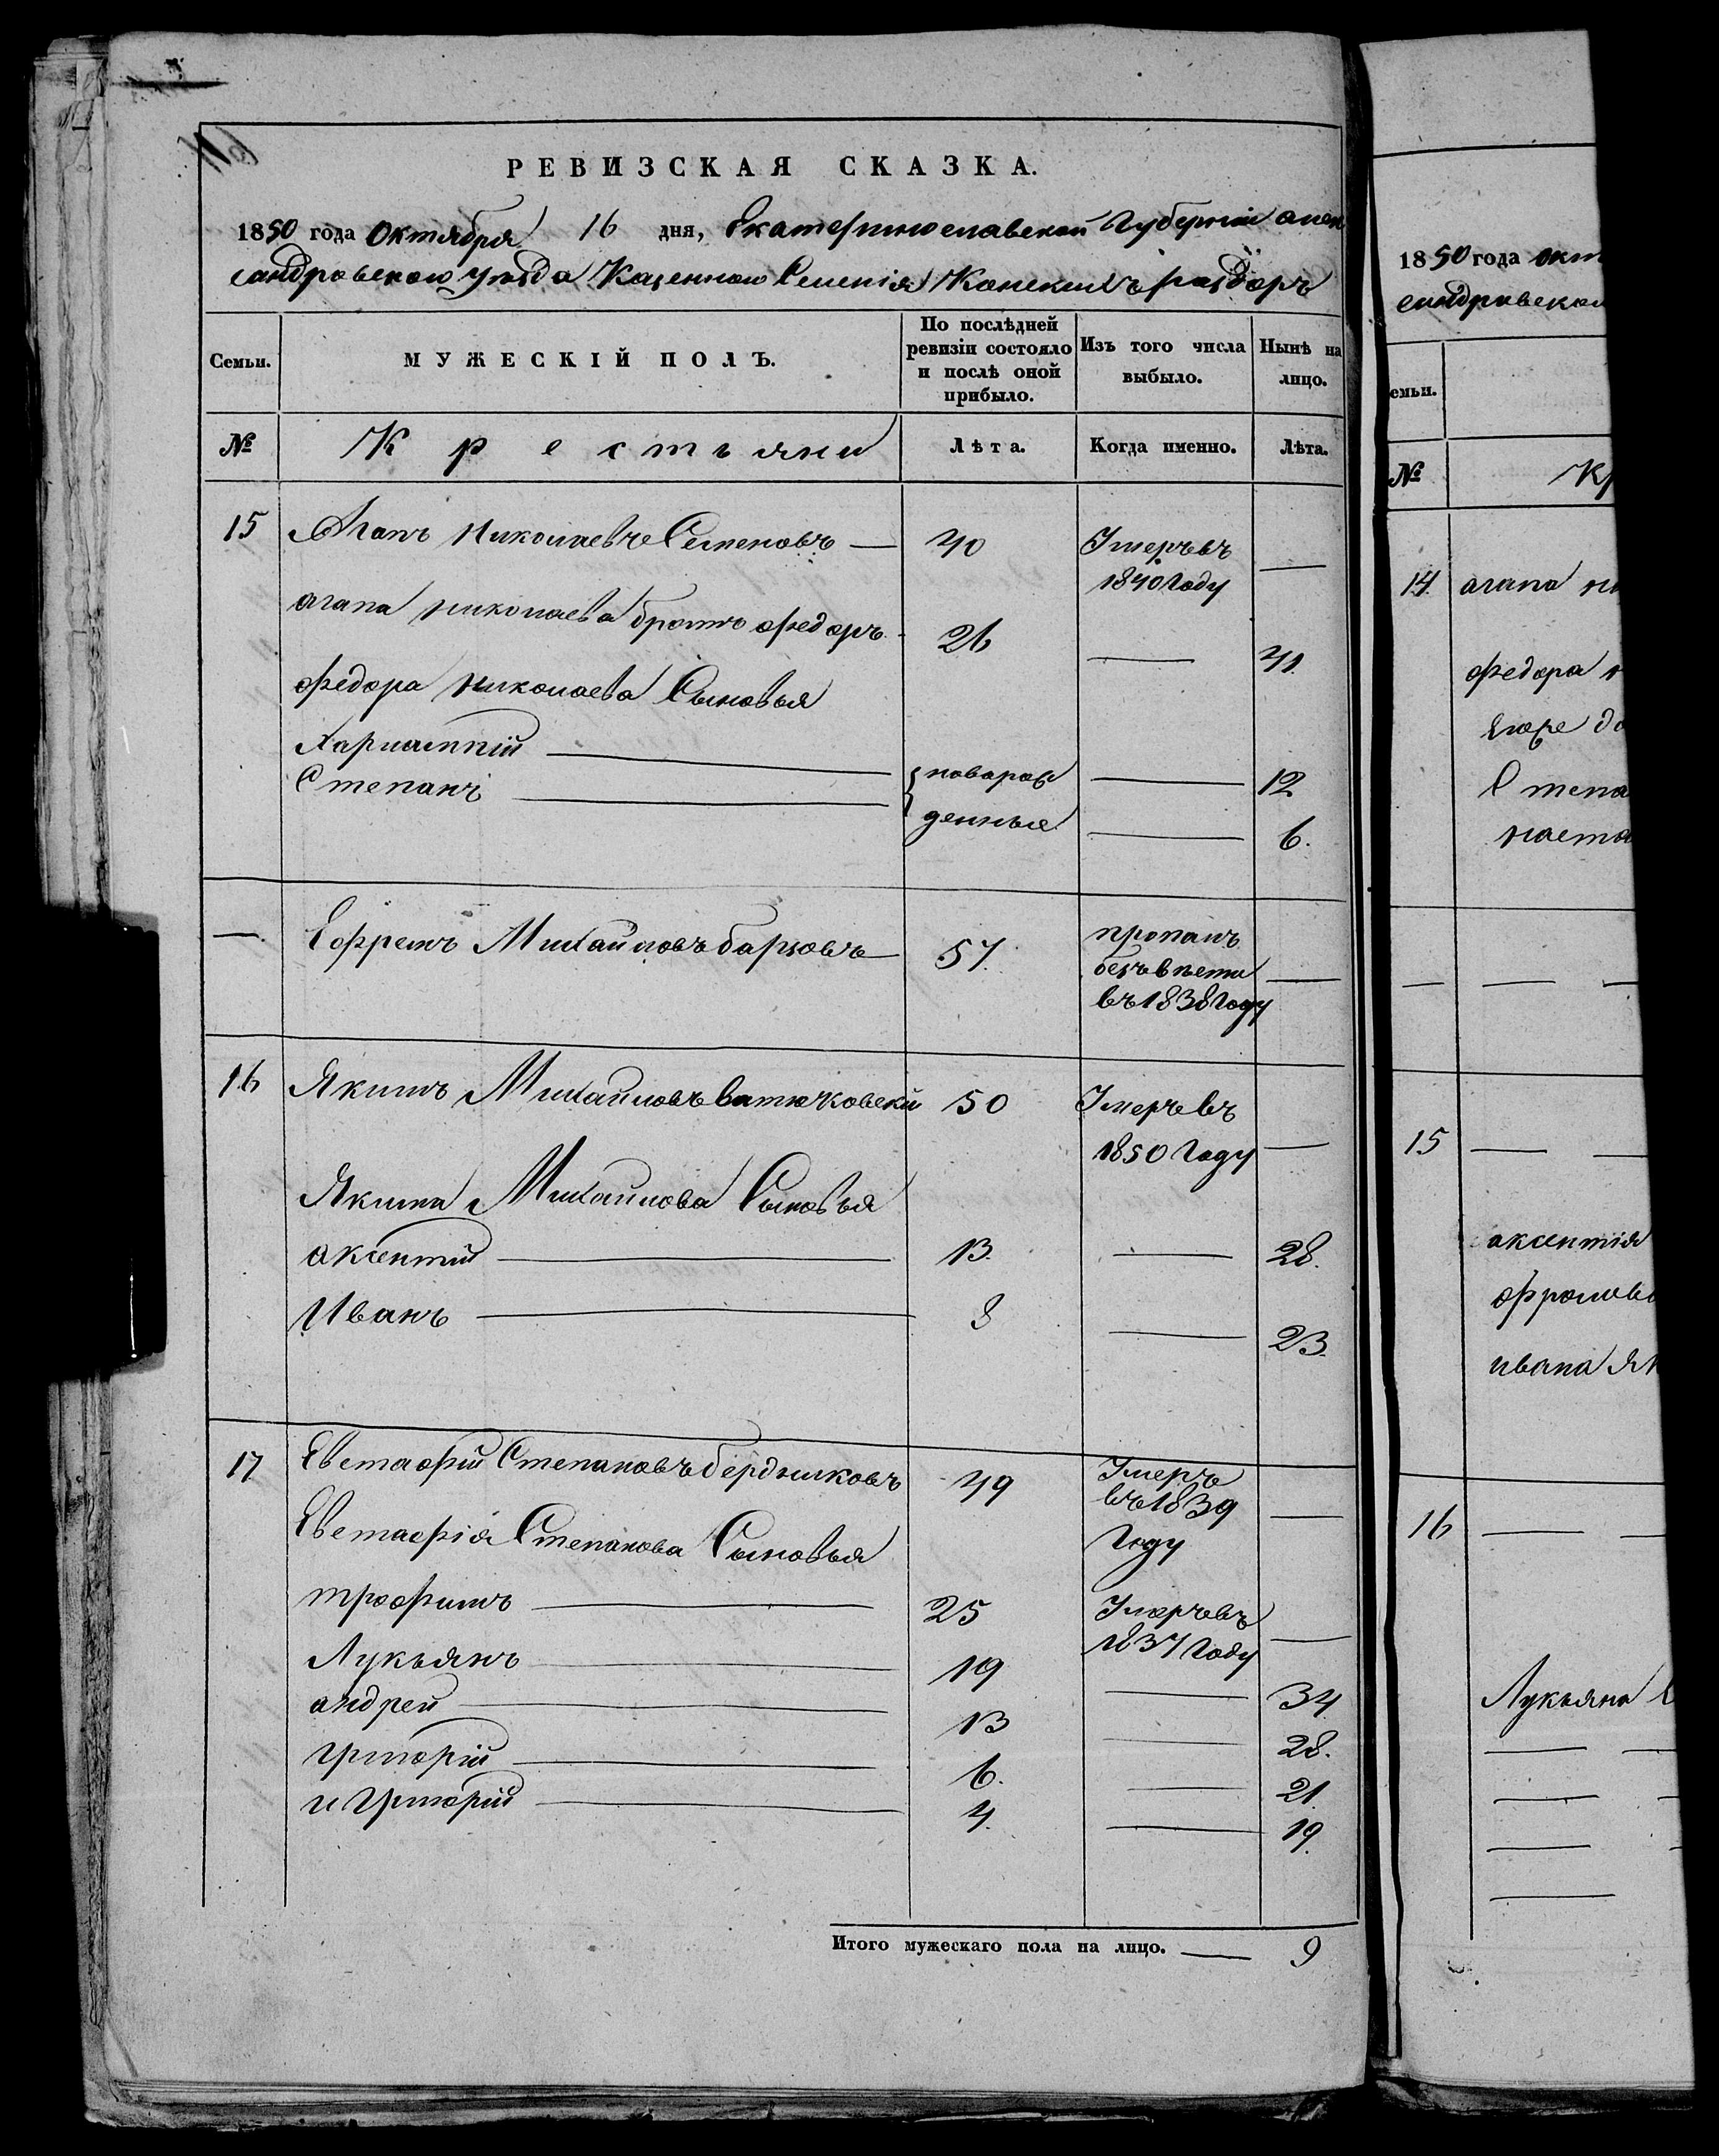 РЕВИЗСКАЯ СКАЗКА.
1850 года Октября 16 дня, Екатеринославской Губернии алек
сандровскаго уезда Казеннаго Селенія Конскихъ раздоръ
Семьи. МУЖЕСКІЙ ПОЛЪ. По послѣдней ревизіи состояло и послѣ оной прибыло. Изъ того числа выбыло. Нынѣ на лицо.
№ Крестьяни Лѣта. Когда именно. Лѣта.
15 Агапъ Николаевъ Семеновъ — 40 Умеръ въ 1840 Году —
агапа николаева братъ федоръ 26 — 41.
федора николаева Сыновья
Харлампій — новарож — 12
Степанъ — денныя — 6.
— Ефремъ Михайловъ — 57. пропалъ безъ вести въ 1838 Году —
16 Якимъ Михайловъ 50 Умеръ въ 1850 Году —
Якима Михайлова Сыновья
аксентий — 13. — 28.
Иванъ — 8 — 23.
17 Евстафий Степановъ бердниковъ 49 Умеръ въ 1839 Году —
Евстафія Степанова Сыновья
трофимъ — 25 Умеръ въ 1837 Году —
Лукьянъ — 19 — 34
андрей — 13 — 28.
григорій — 6. — 21.
и Григорий — 4. — 19.
Итого мужескаго пола на лицо. — 9
1850 года окт
сандровскаг
емьи.
№ Кр
14. агапа ни
федора н
Степа
наста
— — —
15 — —
аксентія
фролов
ивана Як
16 — —
Лукьяна Е